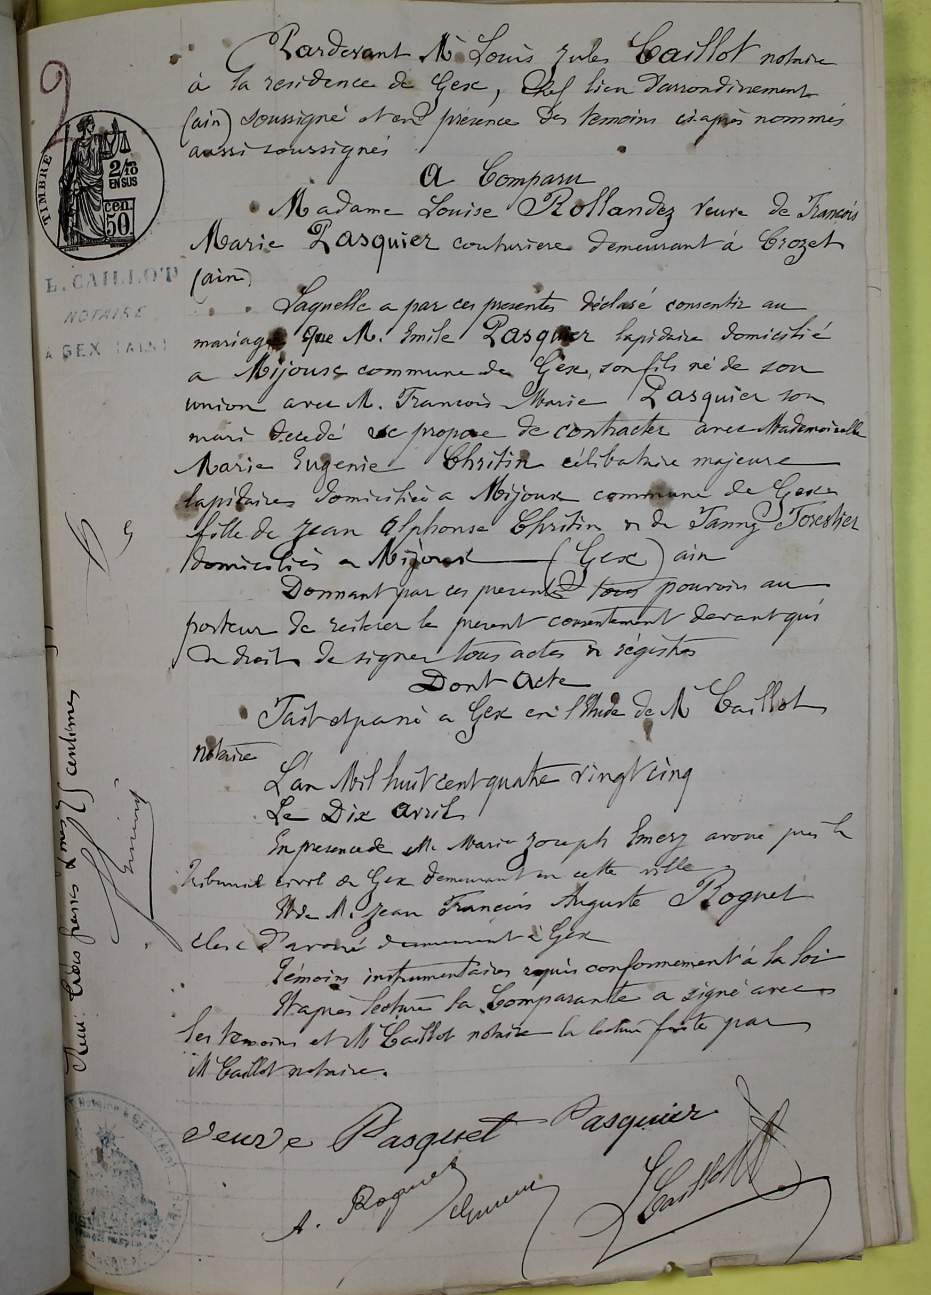 2
TIMBRE
2/10
EN SUS
cen.
50
L. CAILLOT
NOTAIRE
A GEX (AIN)
Pardevant Me Louis Jules Caillot notaire
à la residence de Gex, Chef lieu d'arrondissement
(ain) soussigné et en présence des temoins ci après nommés
aussi soussignés
A Comparu
Madame Louise Rollandez veuve de François
Marie Pasquier couturiere demeurant à Crozet
(ain)
Laquelle a par ces presentes déclaré consentir au
mariage que M. Emile Pasquier lapidaire domicilié
a Mijoux commune de Gex, son fils né de son
union avec M. François Marie Pasquier son
mari decedé se propose de contracter avec Mademoiselle
Marie Eugenie Christin célibataire majeure
lapidaire domiciliée a Mijoux commune de Gex
fille de Jean Alphonse Christin et de Fanny Forestier
domiciliés a Mijoux (Gex) ain
Donnant par ces presentes tous pouvoirs au
porteur de reiterer le present consentement devant qui
de droit de signer tous actes et régistres
Dont Acte
Fait et passé a Gex en l'Etude de Me Caillot
notaire
L'an Mil huit cent quatre vingt cinq
Le Dix avril
En presence de M. Marie Joseph Emery avoué près le
Tribunal civil de Gex demeurant en cette ville
Et de M. Jean François Auguste Roguet
clerc d'avoué demeurant à Gex
Témoins instrumentaires requis conformement à la loi
Et après lecture la Comparante a signé avec
les temoins et Me Caillot notaire la lecture faite par
Me Caillot notaire.
veuve Pasquet Pasquier
A. Roguet Emery LCaillot
trois francs 75 centimes